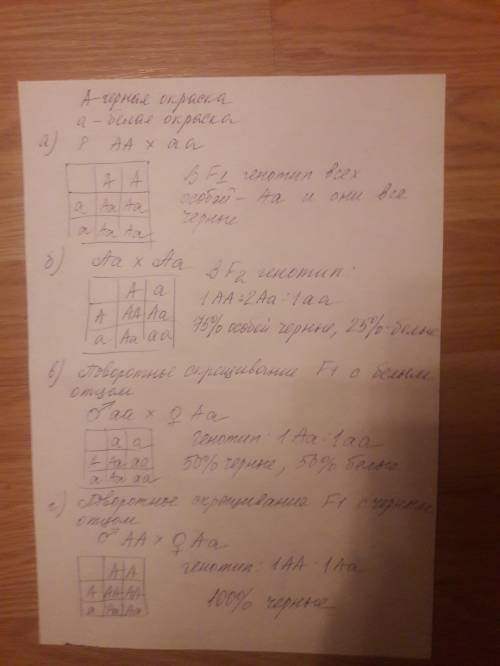 А-черная окраска
а-белая окраска
а) P AA × aa
A A
a Aa Aa
a Aa Aa
В F1 генотип всех
особей - Aa и они все
черные
б) Aa × Aa
A a
A AA Aa
a Aa aa
В F2 генотип:
1AA:2Aa:1aa
75% особей черные, 25%-белые
в) Поворотное скрещивание F1 с белым
отцом
♂ aa × ♀ Aa
a a
A Aa Aa
a aa aa
генотип: 1Aa:1aa
50% черные, 50% белые
г) Поворотное скрещивание F1 с черным
отцом
♂ AA × ♀ Aa
A A
A AA AA
a Aa Aa
генотип: 1AA:1Aa
100% черные